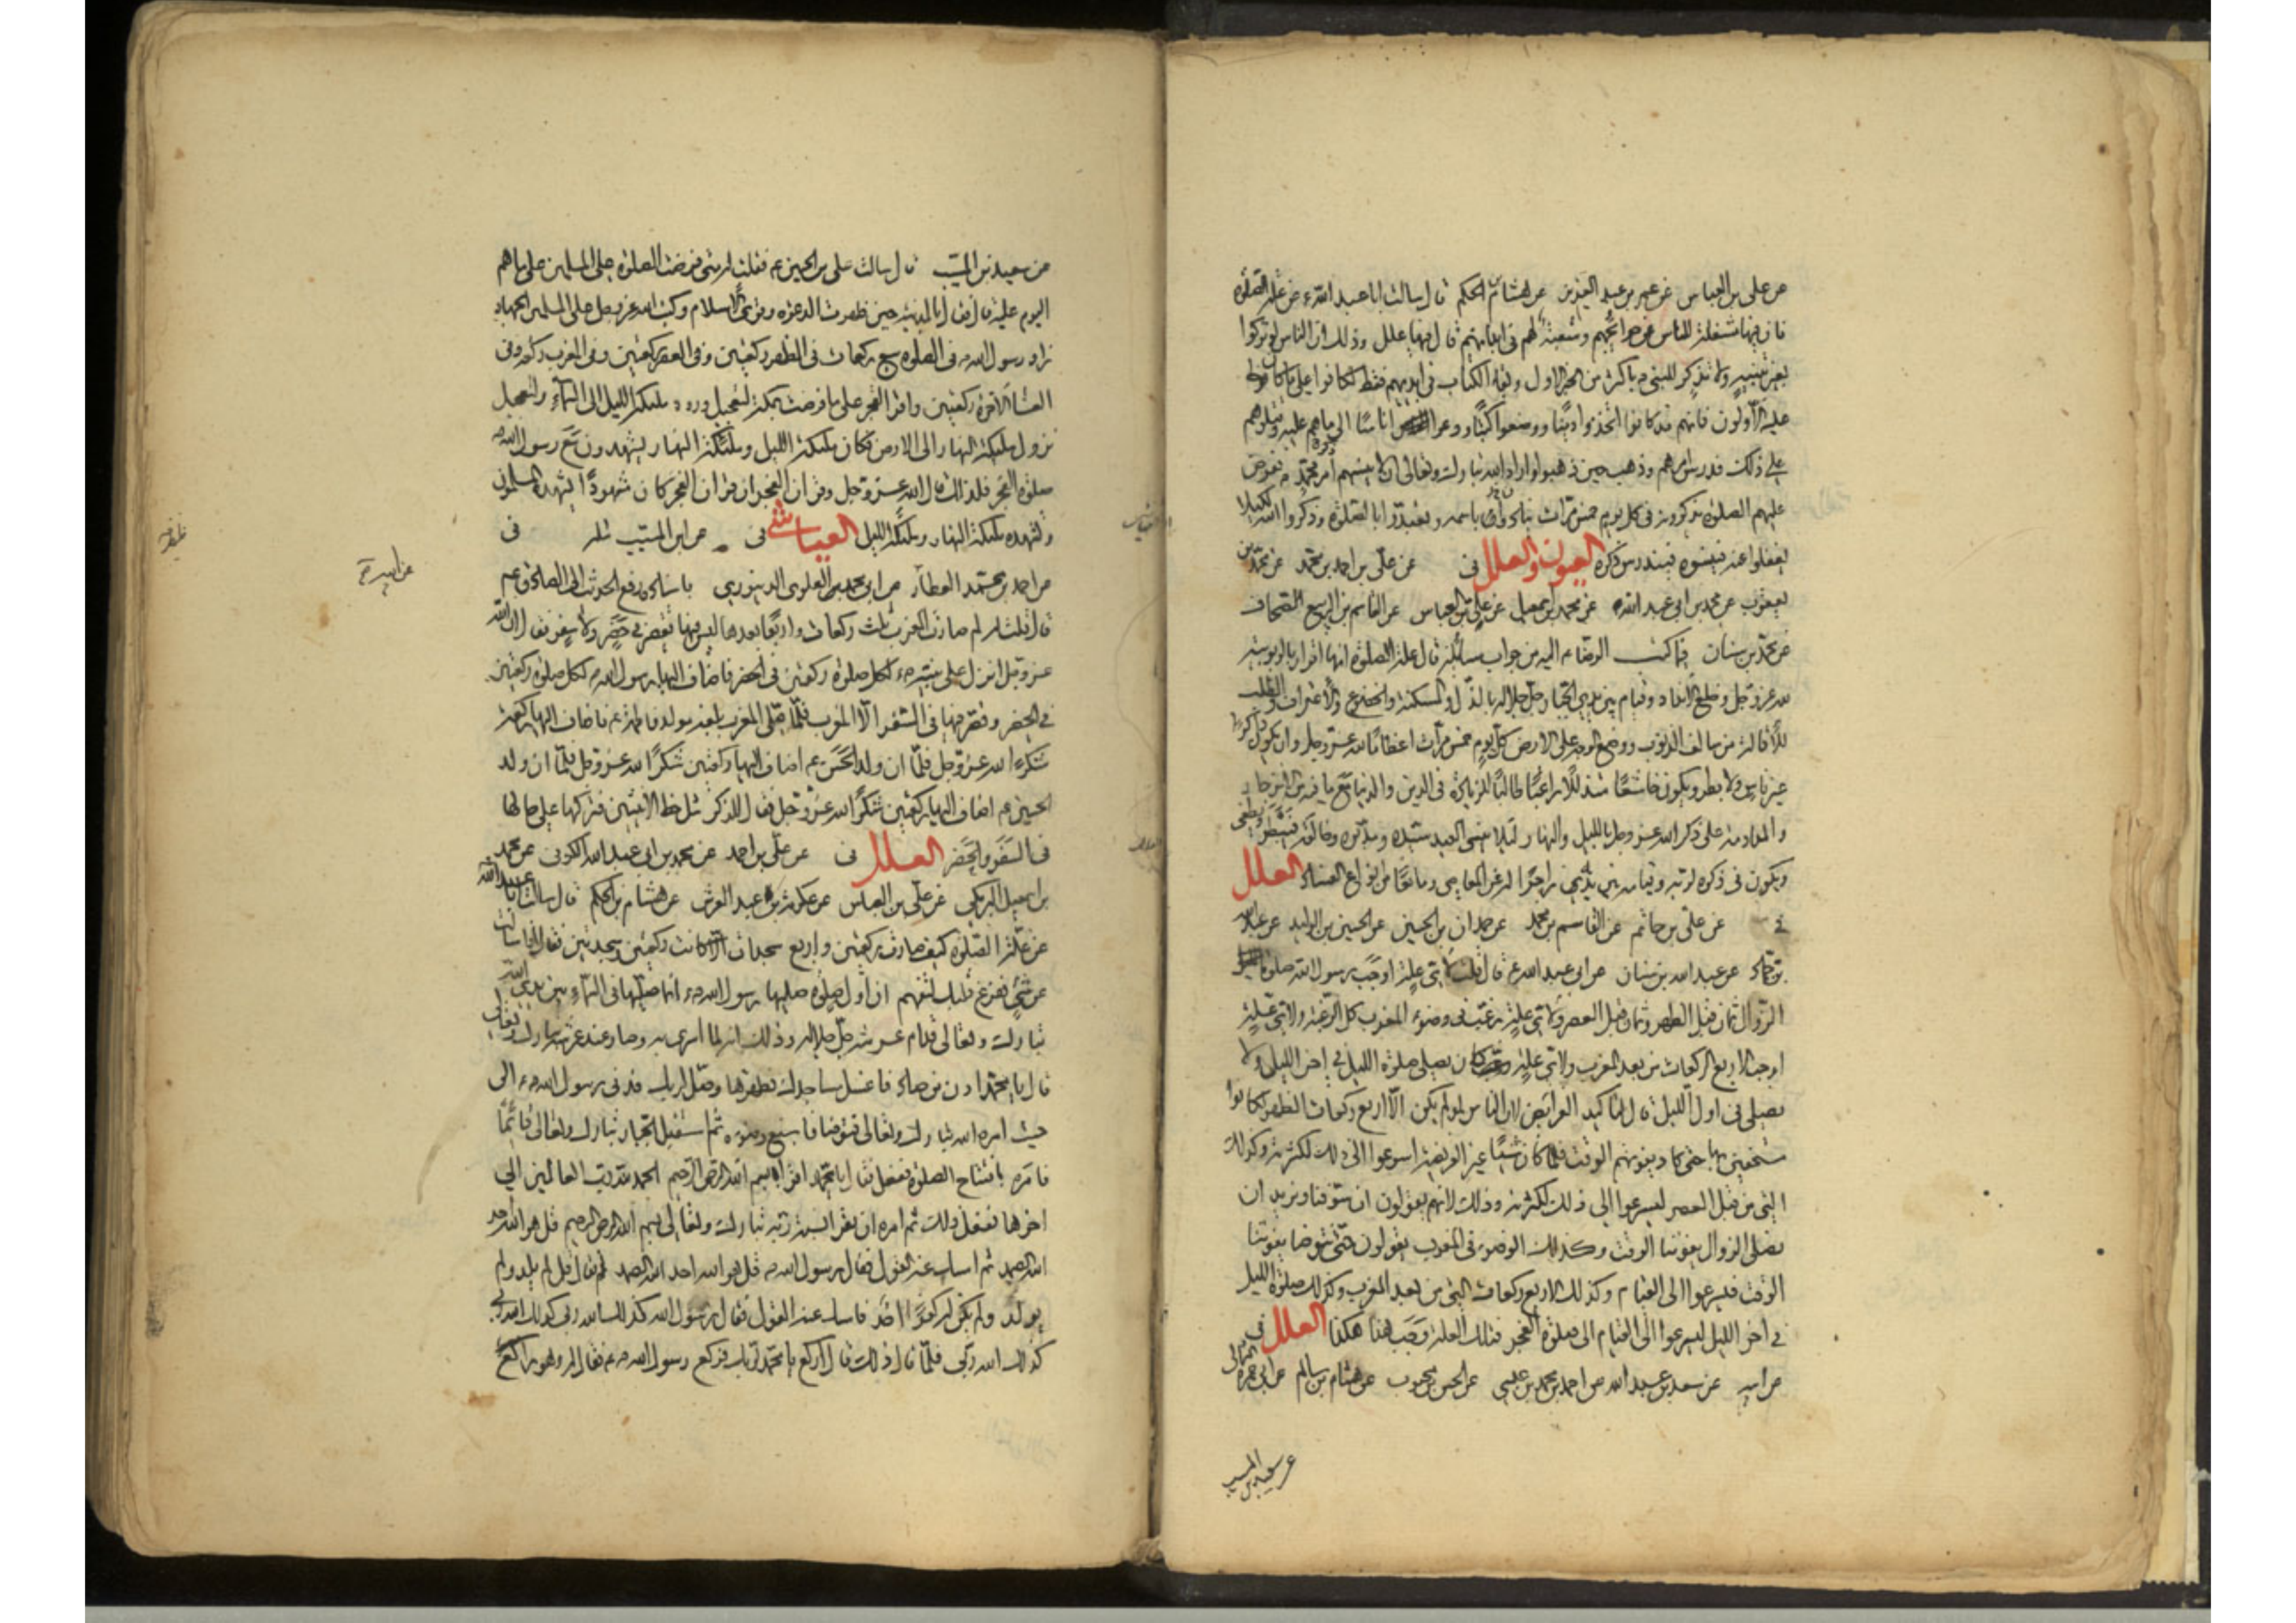 عن علي بن العباس عن عمر بن عبد العزيز عن هشام بن الحكم قال سالت ابا عبد الله ع عن علة الصلوة
فان فيها مشغلة للناس عن حوائجهم ومتعبة لهم في ابدانهم قال فيها علل وذلك ان الناس لو تركوا
بغير تنبيه ولا تذكر للنبي ص باكثر من الخبر الاول وبقاء الكتاب في ايديهم فقط لكانوا على ما كان
عليه الاولون فانهم قد كانوا اتخذوا دينا ووضعوا كتبا ودعوا اناسا الى ما هم عليه وقتلوهم
على ذلك فدرس امرهم وذهب حين ذهبوا واراد الله تبارك وتعالى ان لا ينسيهم امر محمد ص ففرض
عليهم الصلوة يذكرونه في كل يوم خمس مرات ينادون باسمه وتعبدوا بالصلوة وذكروا الله لكيلا
يغفلوا عنه فينسوه فيندرس ذكره العيون والعلل في عن علي بن احمد بن محمد عن محمد بن
يعقوب عن محمد بن ابي عبد الله عن محمد بن اسمعيل عن علي بن العباس عن القاسم بن الربيع الصحاف
عن محمد بن سنان فيما كتب الرضا ع اليه من جواب مسائله قال علة الصلوة انها اقرار بالربوبية
لله عز وجل وخلع الانداد وقيام بين يدي الجبار جل جلاله بالذل والمسكنة والخضوع والاعتراف والطلب
للاقالة من سالف الذنوب ووضع الوجه على الارض كل يوم خمس مرات اعظاما لله عز وجل وان يكون ذاكرا
غير ناس ولا بطر ويكون خاشعا متذللا راغبا طالبا للزيادة في الدين والدنيا مع ما فيه من الانزجار
والمداومة على ذكر الله عز وجل بالليل والنهار لئلا ينسى العبد سيده ومدبره وخالقه فيبطر ويطغى
ويكون في ذكره لربه وقيامه بين يديه زاجرا له عن المعاصي ومانعا من انواع الفساد العلل
في عن علي بن حاتم عن القاسم بن محمد عن حمدان بن الحسين عن الحسين بن الوليد عن عبد الله
بن حماد عن عبد الله بن سنان عن ابي عبد الله ع قال قلت لاي علة اوجب رسول الله صلوة
الزوال ثمان قبل الظهر وثمان قبل العصر ولاي علة رغب في وضوء المغرب كل الرغبة ولاي علة
اوجب الاربع الركعات من بعد المغرب ولاي علة كان يصلي صلوة الليل في اخر الليل ولا
يصلي في اول الليل قال لتاكيد الفرائض لان الناس لو لم يكن الا اربع ركعات الظهر لكانوا
مستخفين بها حتى كاد يفوتهم الوقت فلما كان شيئا غير الفريضة اسرعوا الى ذلك لكثرته وكذلك
التي من قبل العصر ليسرعوا الى ذلك لكثرته وذلك لانهم يقولون ان سوفنا ونريد ان
نصلي الزوال يفوتنا الوقت وكذلك الوضوء في المغرب يقولون حتى نتوضا يفوتنا
الوقت فيسرعوا الى القيام وكذلك الاربع ركعات التي من بعد المغرب وكذلك صلوة الليل
في اخر الليل ليسرعوا الى القيام الى صلوة الفجر فتلك العلة وجب هذا هكذا العلل في
عن ابيه عن سعد بن عبد الله عن احمد بن محمد بن عيسى عن الحسن بن محبوب عن هشام بن سالم عن ابي حمزة الثمالي
عن سعيد بن المسيب
عن سعيد بن المسيب قال سالت علي بن الحسين ع فقلت له متى فرضت الصلوة على المسلمين على ما هم
اليوم عليه قال فقال بالمدينة حين ظهرت الدعوة وقوي الاسلام وكتب الله عز وجل على المسلمين الجهاد
زاد رسول الله ص في الصلوة سبع ركعات في الظهر ركعتين وفي العصر ركعتين وفي المغرب ركعة وفي
العشاء الاخرة ركعتين واقر الفجر على ما فرضت بمكة لتعجيل ورود ملئكة الليل الى السماء ولتعجيل
نزول ملئكة النهار الى الارض فكان ملئكة الليل وملئكة النهار يشهدون مع رسول الله ص
صلوة الفجر فلذلك قال الله عز وجل وقران الفجر ان قران الفجر كان مشهودا ليشهده المسلمون
وليشهده ملئكة النهار وملئكة الليل العياشي في عن ابن المسيب مثله في
عن احمد بن محمد العطار عن ابي محمد العلوي الدينوري باسناده رفع الحديث الى الصادق ع
قال قلت له لم صارت المغرب ثلث ركعات واربعا بعدها ليس فيها تقصير في حضر ولا سفر فقال ان الله
عز وجل انزل على نبيه ص لكل صلوة ركعتين في الحضر فاضاف اليها رسول الله ص لكل صلوة ركعتين
في الحضر وقصر فيها في السفر الا المغرب فلما صلى المغرب بلغه مولد فاطمة ع فاضاف اليها ركعة
شكرا لله عز وجل فلما ان ولد الحسن ع اضاف اليها ركعتين شكرا لله عز وجل فلما ان ولد
الحسين ع اضاف اليها ركعتين شكرا لله عز وجل فقال للذكر مثل حظ الانثيين فتركها على حالها
في السفر والحضر العلل في عن علي بن احمد عن محمد بن ابي عبد الله الكوفي عن محمد
بن اسمعيل البرمكي عن علي بن العباس عن عكرمة بن عبد العرش عن هشام بن الحكم قال سالت ابا عبد الله
عن علة الصلوة كيف صارت ركعتين واربع سجدات الا كانت ركعتين وسجدتين فقال اذا سالت
عن شيء ففرغ قلبك لتفهم ان اول صلوة صليها رسول الله ص انما صليها في السماء بين يدي الله
تبارك وتعالى قدام عرشه جل جلاله وذلك انه لما اسري به وصار عند عرشه تبارك وتعالى
قال يا محمد ادن من صاد فاغسل مساجدك وطهرها وصل لربك فدنى رسول الله ص الى
حيث امره الله تبارك وتعالى فتوضا فاسبغ وضوءه ثم استقبل الجبار تبارك وتعالى قائما
فامره بافتتاح الصلوة ففعل فقال يا محمد اقرا بسم الله الرحمن الرحيم الحمد لله رب العالمين الى
اخرها ففعل ذلك ثم امره ان يقرا نسبة ربه تبارك وتعالى بسم الله الرحمن الرحيم قل هو الله احد
الله الصمد ثم امسك عنه القول فقال رسول الله ص قل هو الله احد الله الصمد ثم قال قل لم يلد ولم
يولد ولم يكن له كفوا احد فامسك عنه القول فقال رسول الله كذلك الله ربي كذلك الله ربي
كذلك الله ربي فلما قال ذلك قال اركع يا محمد لربك فركع رسول الله ص فقال له وهو راكع